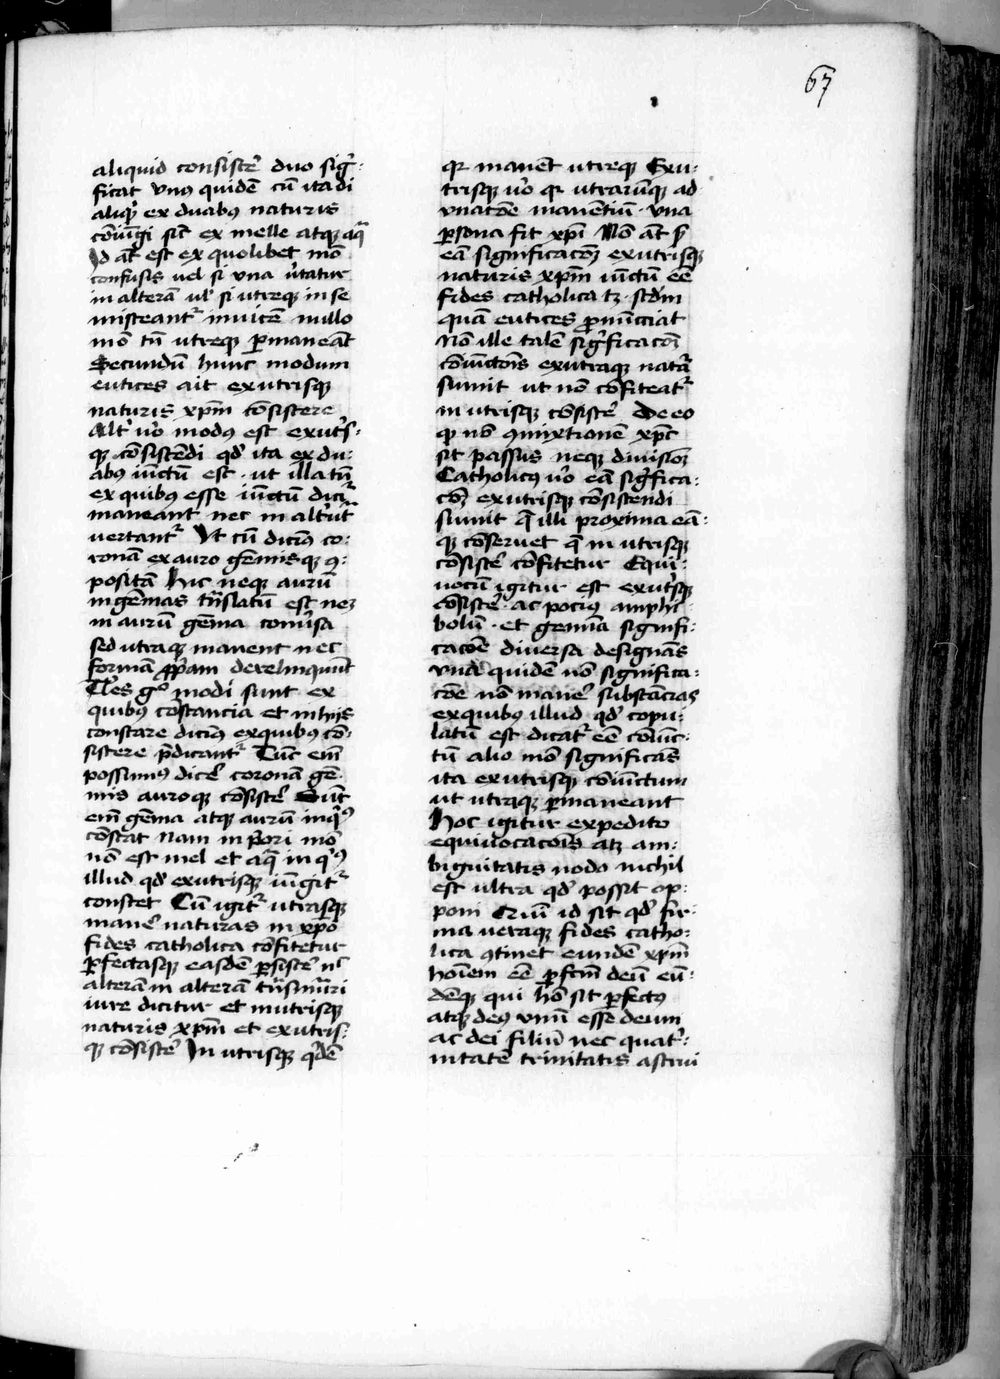 67
aliquid consistē duo sig̃:
ficat vnū quidē cū ita di
aliqͥ ex duabꝯ naturis
cōiūgi sic̄ ex melle atqꝫ aq̄
Id aūt est ex quolibet mō
confusis uel si una ūtatur
in alterā uĺ si utreqꝫ in se
misceantᷣ inuicē nullo
mō tn̄ utreqꝫ ꝑmaneāt
Secundū hunc modum
eutices ait ex utrisqꝫ
naturis xp̄m cōsistere
Alt̄ ūo modꝯ est ex ut̄s:
qꝫ cōsistēdi qd̄ ita ex du:
abꝯ iūctū est · ut illa tn̄
ex quibꝯ esse iūctū dicitᷣ
maneant nec in alt̄ut̄
uertantᷣ Vt cū dicimꝯ co:
ronā ex auro gēmisqꝫ ꝯ:
positā Hic neqꝫ aurū
in gēmas tr̄slatū est neqꝫ
in aurū gēma conūsa
sed utraqꝫ manent nec
formā ꝓpͥam derelinquūt
Tales gͦ modi sunt ex
quibꝯ constancia et in hijs
constare dicimꝯ ex quibꝯ cō:
sistere p̄dicantᷣ Tūc em̄
possumus dicē coronā gē:
mis auroqꝫ cōsistē Sūt
em̄ gēma atqꝫ aurū in qͥbꝯ
constat nam in pori mō
nō est mel et aq̄ in qͥbꝯ
illud qd̄ ex utrisqꝫ iūgitᷣ
constet Cū igitᷣ utrasqꝫ
manē naturas in xp̄o
fides catholica cōfitetur
ꝑfectasqꝫ easdē ꝑsistē nͨ
alterā in alterā tr̄smūri
iure dicitur et in utrisqꝫ
naturis xp̄m et ex utris:
qꝫ cōsistē In utrisqꝫ qͥdē
qꝛ manēt utreqꝫ Exu:
trisqꝫ ūo qꝛ utrarūqꝫ ad
vnacōe manentiū · vna
ꝑsona fit xp̄i Nō aūt ẜ
eā significacōꝫ ex utrisqꝫ
naturis xp̄m iūctū eē
fides catholica tꝫ · scdm
quā eutices ꝓnūciat
Nō ille talē sig̃ficacōꝫ
cōiūctōis ex utraqꝫ natā
sumit ut nō cōfiteatᷣ
in utrisqꝫ cōsistē Deeo
qꝫ nō ꝯmixtionē xp̄c
sit passus neqꝫ diuisiōꝫ
Catholicꝯ ūo eā sig̃fica:
cōꝫ ex utrisqꝫ cōsistendi
sumit q̄ illi proxima eā:
qꝫ cōseruet q̄ in utrisqꝫ
cōsistē cōfitetur Equi:
uocū igitur est ex ut̄sqꝫ
cōsistē · ac pociꝯ amphi:
bolū · et gemīa signifi:
cacōe diuersa designās
vna quidē nō significa:
cōe nō manē substācias
ex quibꝯ illud qd̄ copu:
latū est dicatᷣ eē cōiūc:
tū alio mō significās
ita ex utrisqꝫ cōiūctum
ut utraqꝫ ꝑmaneant
Hoc igitur expedito
equiuocacōis atqꝫ am:
biguitatis nodo nichil
est ultra qd̄ possit op:
poni Qͥn id sit qd̄ fir:
ma ueraqꝫ fides catho:
lica ꝯtinet eundē xp̄m
hoīem eē ꝑfcm̄ deū eū:
dēqꝫ qui hō sit ꝑfectꝯ
atqꝫ deꝯ vnū esse deum
ac dei filiū nec quatᷣ:
nitatē trinitatis astrui